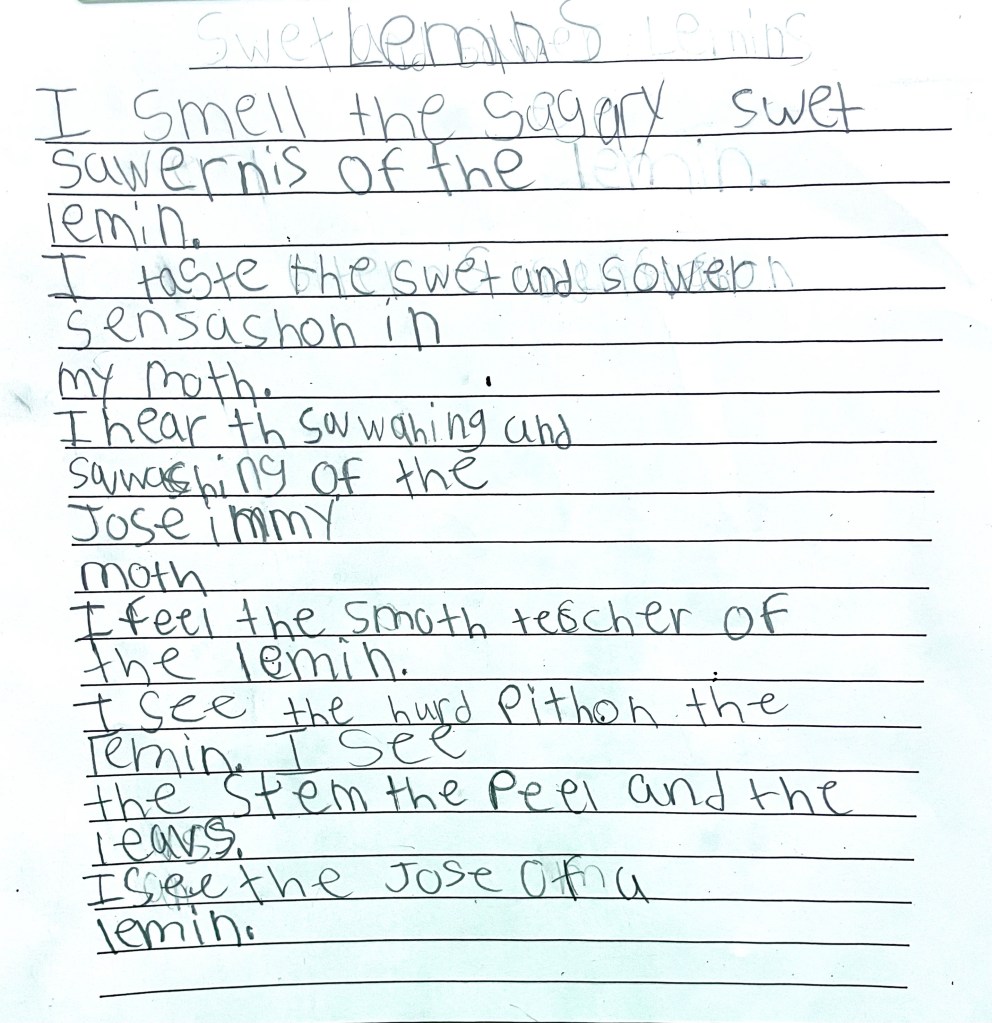 Lemins
I smell the sagary swet
sawernis of the
lemin.
I taste the swet and sower
sensashon in
my moth.
I hear th sawahing and
sawashing of the
Jose immy
moth
I feel the smoth tescher of
the lemin.
I see the hard Pith on the
lemin. I see
the stem the Peel and the
leavs.
I see the Jose of a
lemin.